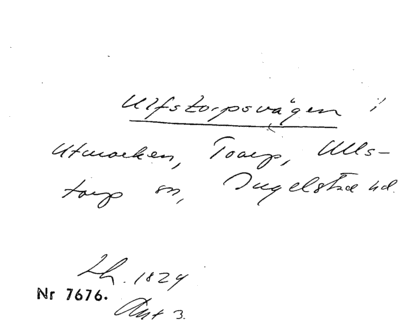 Ulfstorpsvägen i
Utmarken, Toarp, Ulls-
torp sn, Ingelstad hd.
Lh. 1824
Nr 7676.
Akt 3.